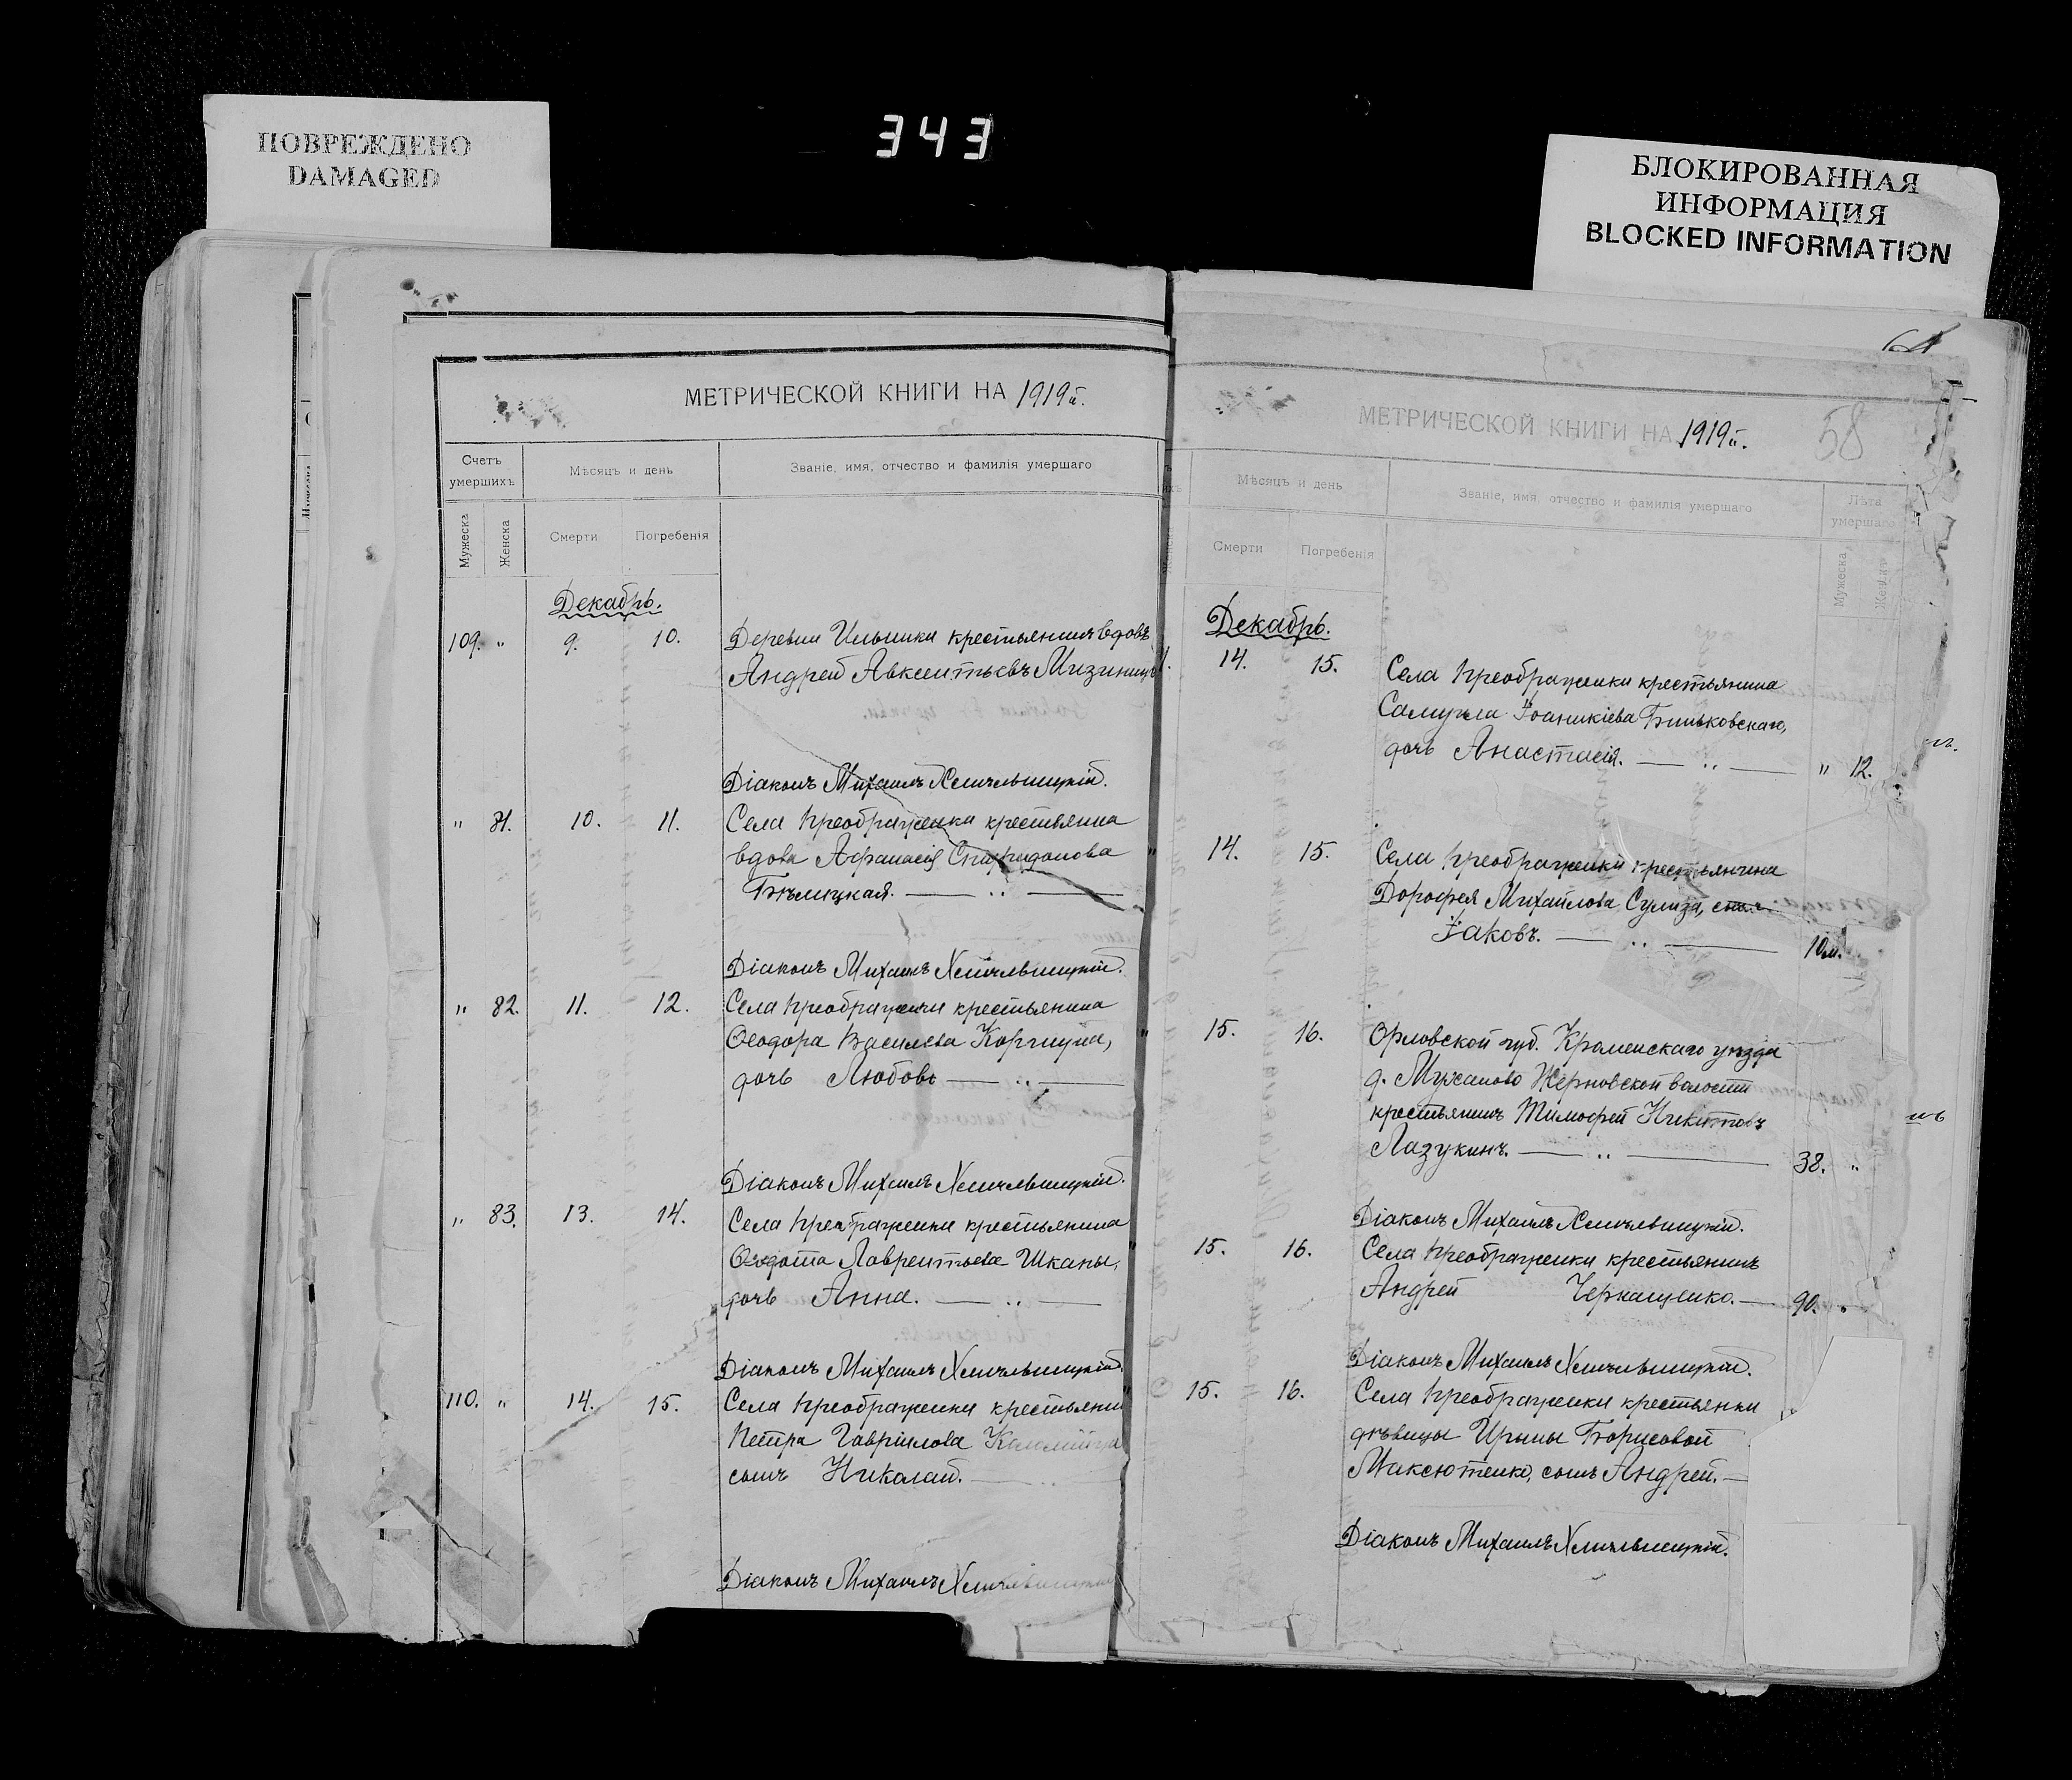 ПОВРЕЖДЕНО
DAMAGED
343
БЛОКИРОВАННАЯ
ИНФОРМАЦИЯ
BLOCKED INFORMATION
МЕТРИЧЕСКОЙ КНИГИ НА 1919 г.
Счетъ умершихъ
Мѣсяцъ и день
Званіе, имя, отчество и фамилія умершаго
Мужеска
Женска
Смерти
Погребенія
Декабрь.
109. " 9. 10. Деревни Ильинки крестьянинъ вдовъ
Андрей Авксентьевъ
Діаконъ Михаилъ
" 81. 10. 11. Села Преображенки крестьянка
вдова Афанасія Спиридонова
Бѣлицкая.
Діаконъ Михаилъ
" 82. 11. 12. Села Преображенки крестьянина
Ѳеодора Василева
дочь Любовь
Діаконъ Михаилъ
" 83. 13. 14. Села Преображенки крестьянина
Ѳеодота Лаврентьева Шкапы,
дочь Анна.
Діаконъ Михаилъ
110. " 14. 15. Села Преображенки крестьянин
Петра Гавріилова
сынъ Николай.
Діаконъ Михаилъ
МЕТРИЧЕСКОЙ КНИГИ НА 1919 г. 58
Мѣсяцъ и день
Званіе, имя, отчество и фамилія умершаго
Лѣта умершаго
Смерти
Погребенія
Мужеска
Женска
Декабрь.
14. 15. Села Преображенки крестьянина
Самуила Іоаникіева Биньковскаго,
дочь Анастасія. " 12.
14. 15. Села Преображенки крестьянина
Дорофея Михайлова Сулиза, сынъ
Іаковъ. 10 м.
15. 16. Орловской губ. Кроменскаго уѣзда
д. Жерновской волости
крестьянинъ Тимофей Никитовъ
Лазукинъ. 38. "
Діаконъ Михаилъ
15. 16. Села Преображенки крестьянинъ
Андрей Чернащенко. 90. "
Діаконъ Михаилъ
15. 16. Села Преображенки крестьянки
дѣвицы Ирины Борисовой
Максютенко, сынъ Андрей.
Діаконъ Михаилъ